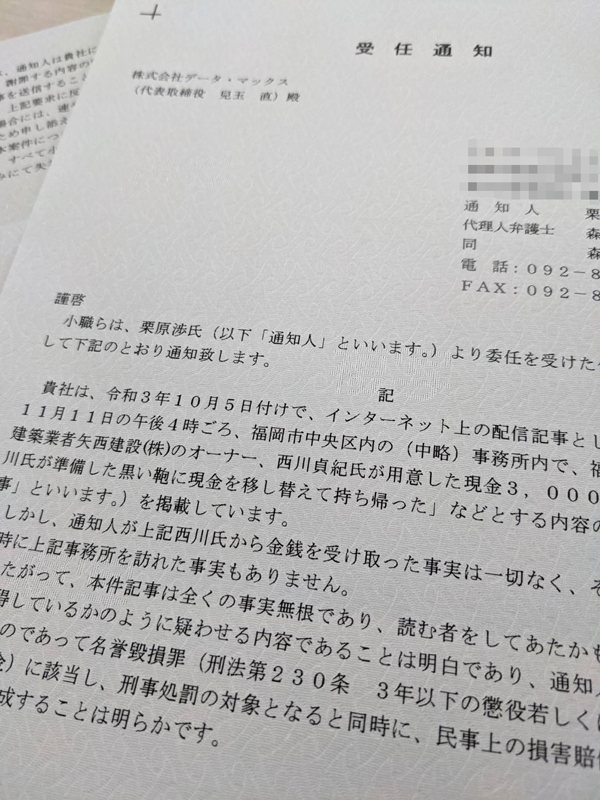 受任通知
株式会社データ・マックス
（代表取締役　児玉　直）殿
通知人　栗
代理人弁護士　森
同　森
電話：０９２－８
ＦＡＸ：０９２－８
謹啓
小職らは、栗原渉氏（以下「通知人」といいます。）より委任を受けた
して下記のとおり通知致します。
記
貴社は、令和３年１０月５日付けで、インターネット上の配信記事とし
１１月１１日の午後４時ごろ、福岡市中央区内の（中略）事務所内で、福
建築業者矢西建設(株)のオーナー、西川貞紀氏が用意した現金３，０００
川氏が準備した黒い鞄に現金を移し替えて持ち帰った」などとする内容の
事」といいます。）を掲載しています。
しかし、通知人が上記西川氏から金銭を受け取った事実は一切なく、そ
時に上記事務所を訪れた事実もありません。
たがって、本件記事は全くの事実無根であり、読む者をしてあたかも
得しているかのように疑わせる内容であることは明白であり、通知人
のであって名誉毀損罪（刑法第２３０条　３年以下の懲役若しくは
金）に該当し、刑事処罰の対象となると同時に、民事上の損害賠償
成することは明らかです。
、通知人は貴社に
謝罪する内容の
事を送信すること
上記要求に反
場合には、速や
ため申し添え
本案件につ
すべて小